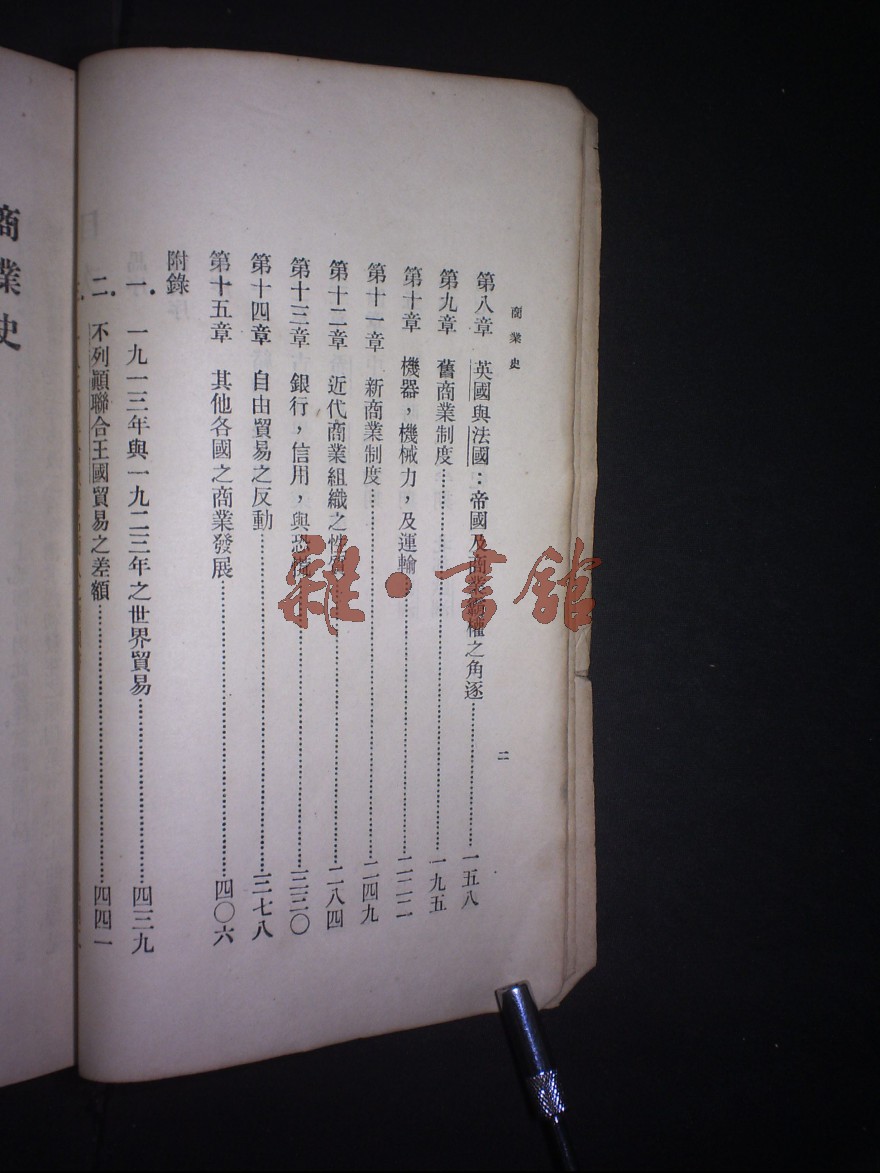 商業史
二
第八章 英國與法國：帝國及商業霸權之角逐……一五八
第九章 舊商業制度……一九五
第十章 機器，機械力，及運輸……二二二
第十一章 新商業制度……二四九
第十二章 近代商業組織之性質……二八四
第十三章 銀行，信用，與恐慌……三三〇
第十四章 自由貿易之反動……三七八
第十五章 其他各國之商業發展……四〇六
附錄
一. 一九一三年與一九二三年之世界貿易……四三九
二. 不列顚聯合王國貿易之差額……四四一
商業史
雜·書館